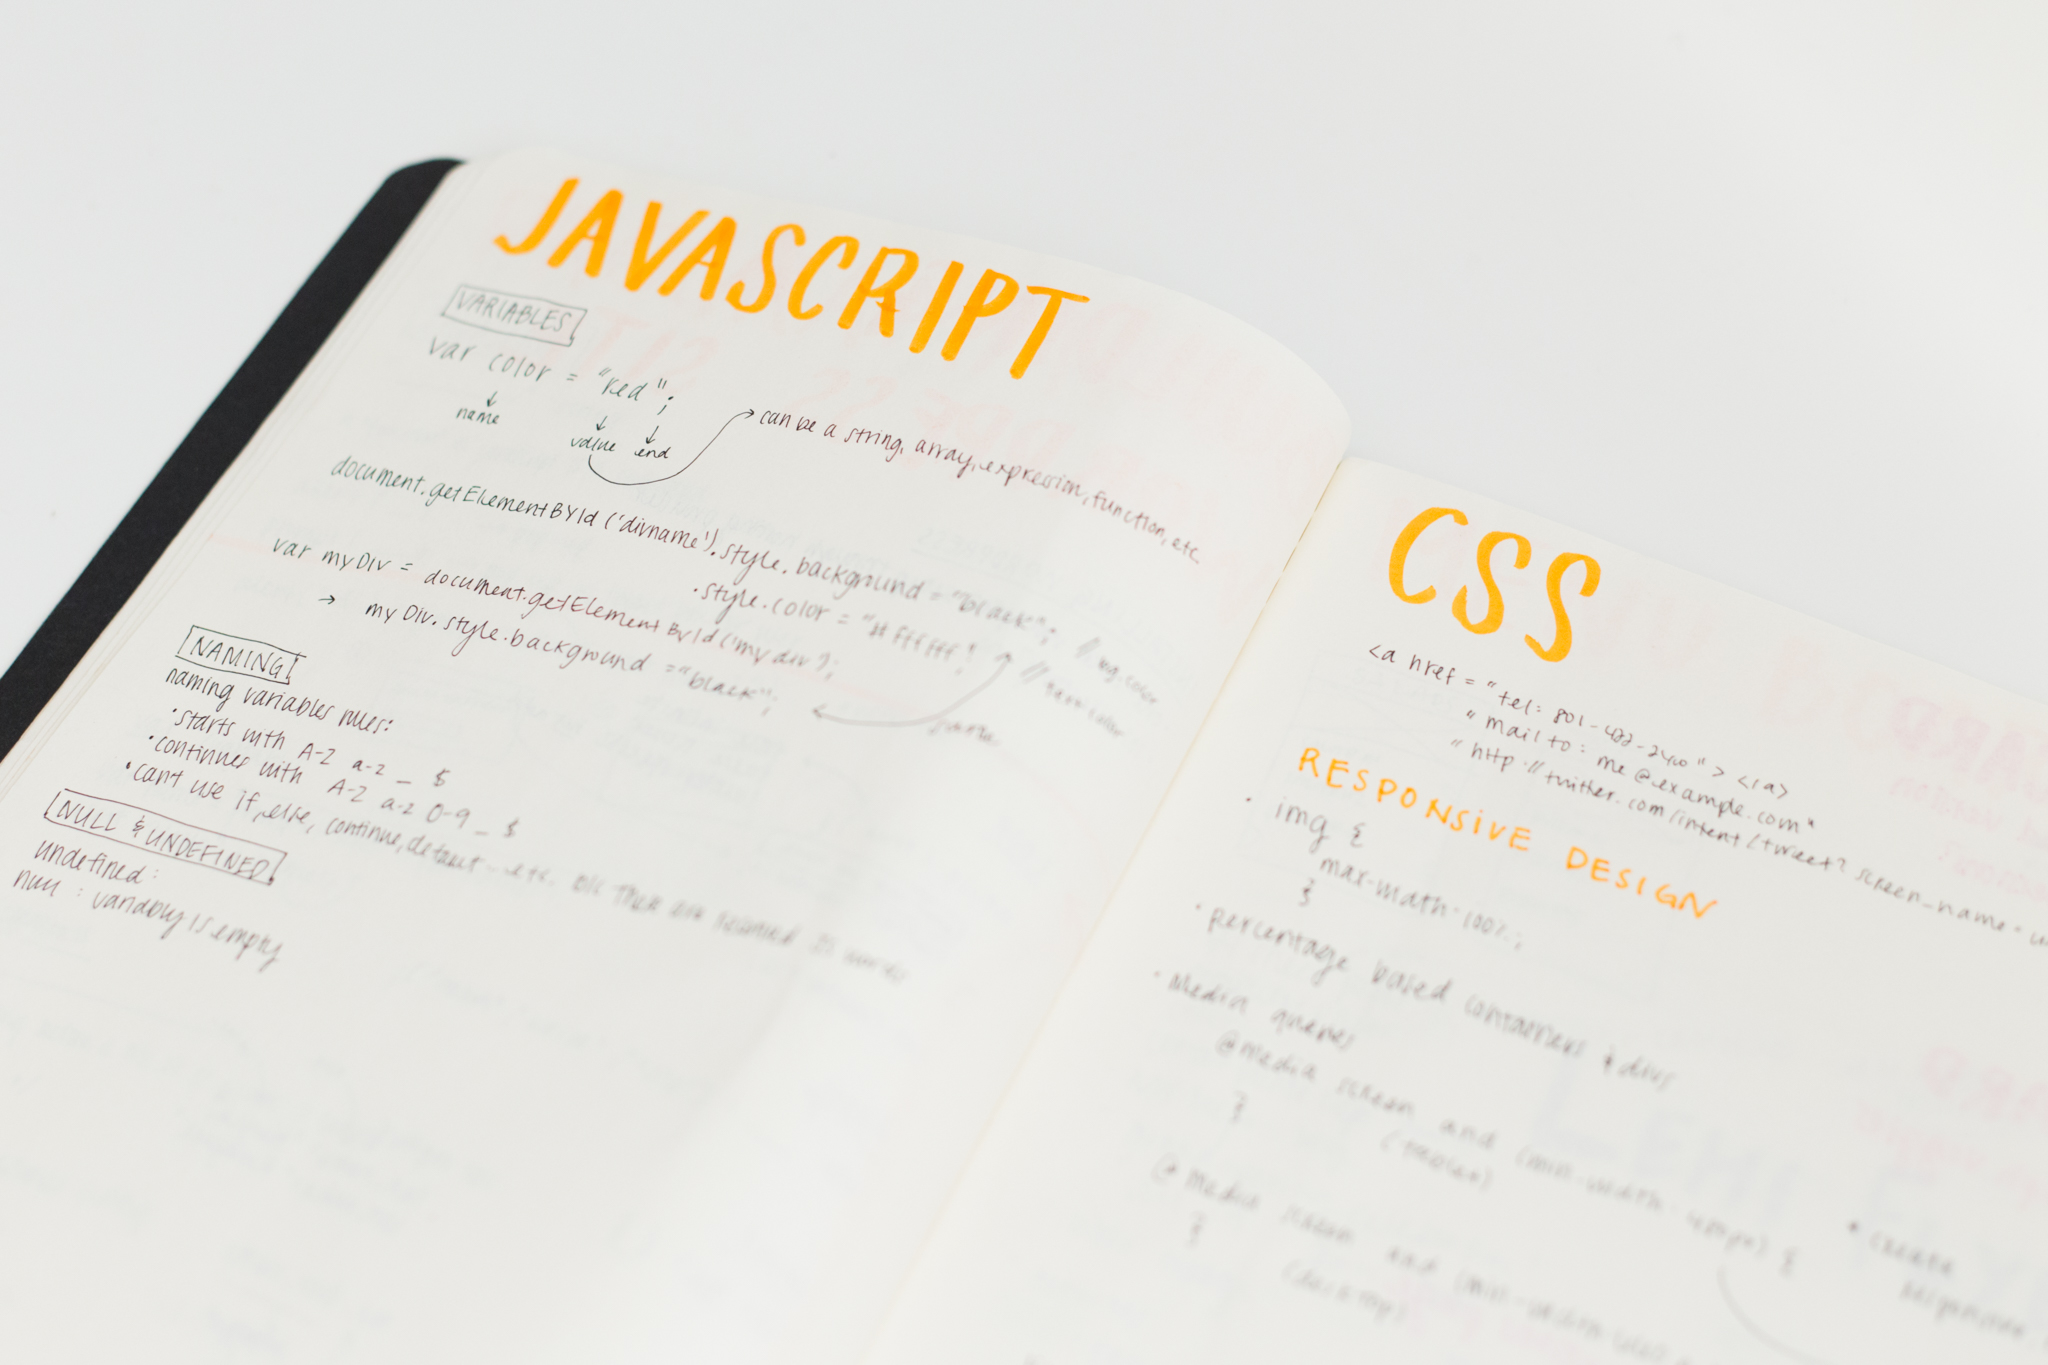 JAVASCRIPT
VARIABLES
var color = "red";
name
value
end
can be a string, array, expression, function, etc.
document.getElementById('divname').style.background = "black"; // bg color
.style.color = "#ffffff"; // text color
var myDiv = document.getElementById('mydiv');
→ myDiv.style.background = "black";
NAMING
naming variables rules:
• starts with A-Z a-z _ $
• continues with A-Z a-z 0-9 _ $
• can't use if, else, continue, default... etc.
NULL & UNDEFINED
undefined:
null : variably is empty
CSS
<a href = "tel: 801-422-2400"> </a>
"mail to: me@example.com"
"http://twitter.com/intent/tweet? screen_name=
RESPONSIVE DESIGN
• img {
max-width:100%;
}
• percentage based containers & divs
• Media queries
@media screen and (min-width: {
}
@Media screen and (min-width:
{
• create